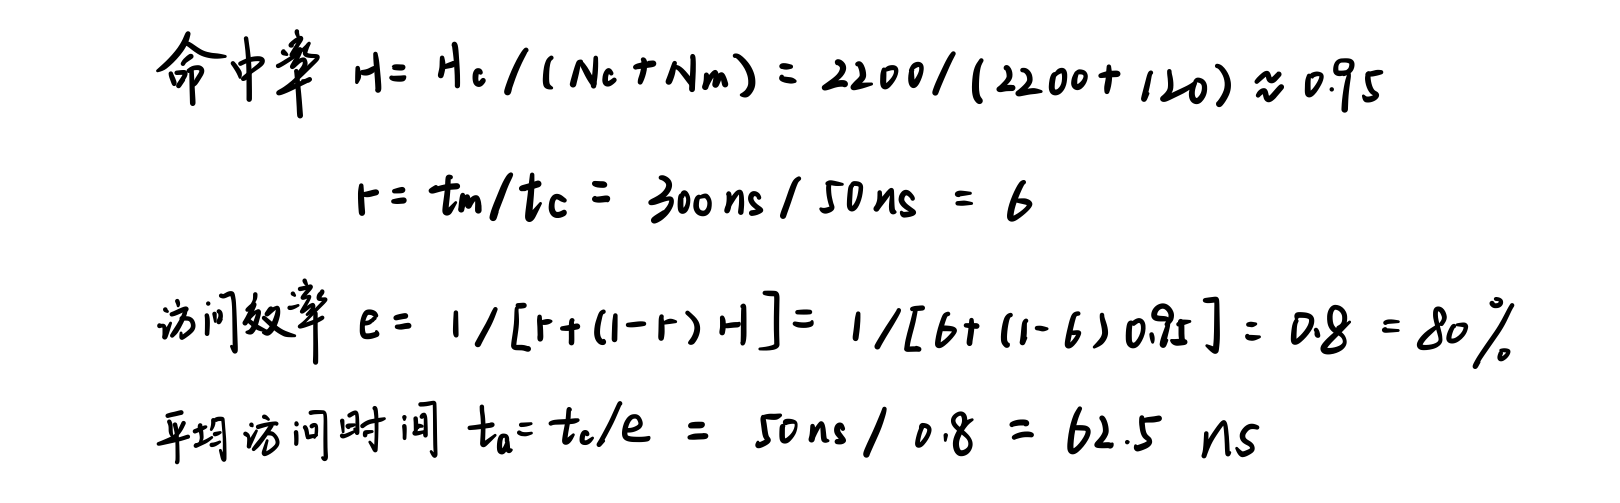 命中率 H = Hc / (Nc + Nm) = 2200 / (2200 + 120) ≈ 0.95
r = tm/tc = 300ns / 50ns = 6
访问效率 e = 1 / [r + (1-r) H] = 1 / [6 + (1-6) 0.95] = 0.8 = 80%
平均访问时间 ta = tc/e = 50ns / 0.8 = 62.5 ns